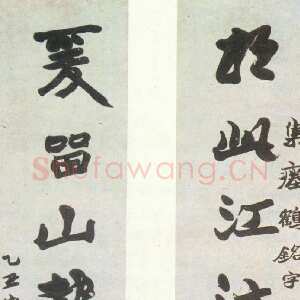 相此江
集瘞鶴銘字
爰留山
乙丑
Shufawang.CN